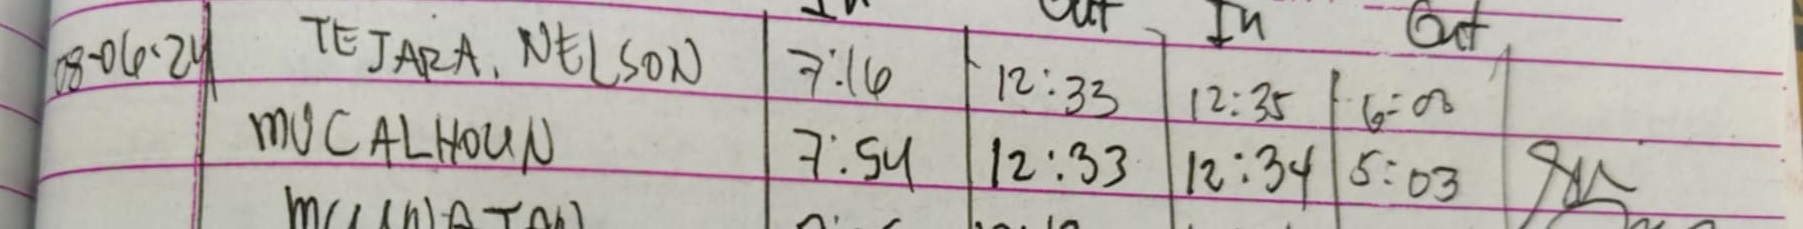 In Out In Out
08-06-24 TEJARA, NELSON 7:16 12:33 12:35 6:00
MVCALHOUN 7:54 12:33 12:34 5:03